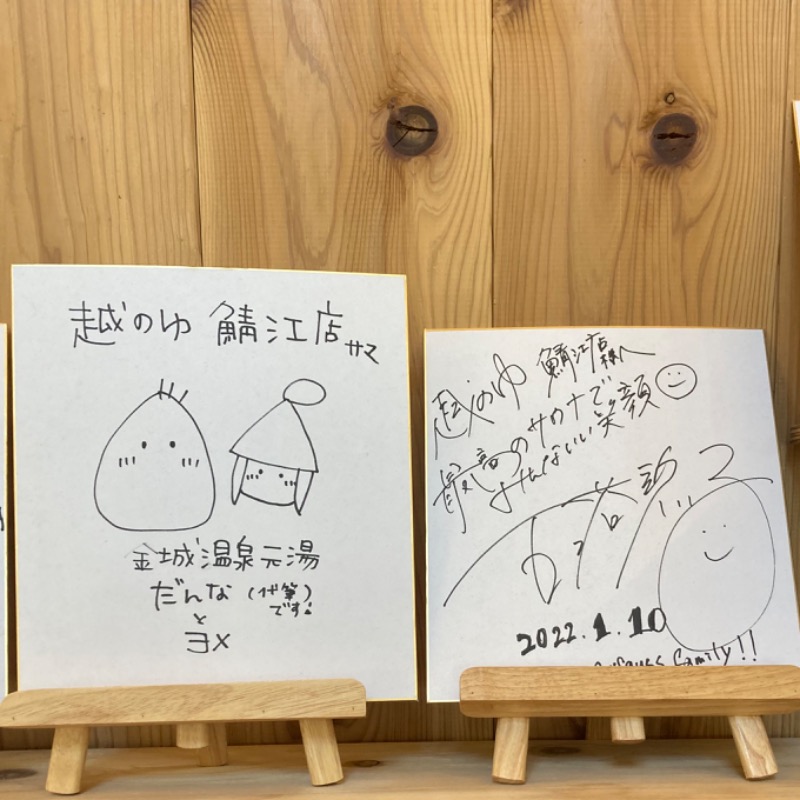 越のゆ 鯖江店サマ
金城温泉元湯
だんな(代筆)です!
と
ヨメ
越のゆ 鯖江店様へ
最高のサウナで
いい笑顔
2022.1.10
family!!